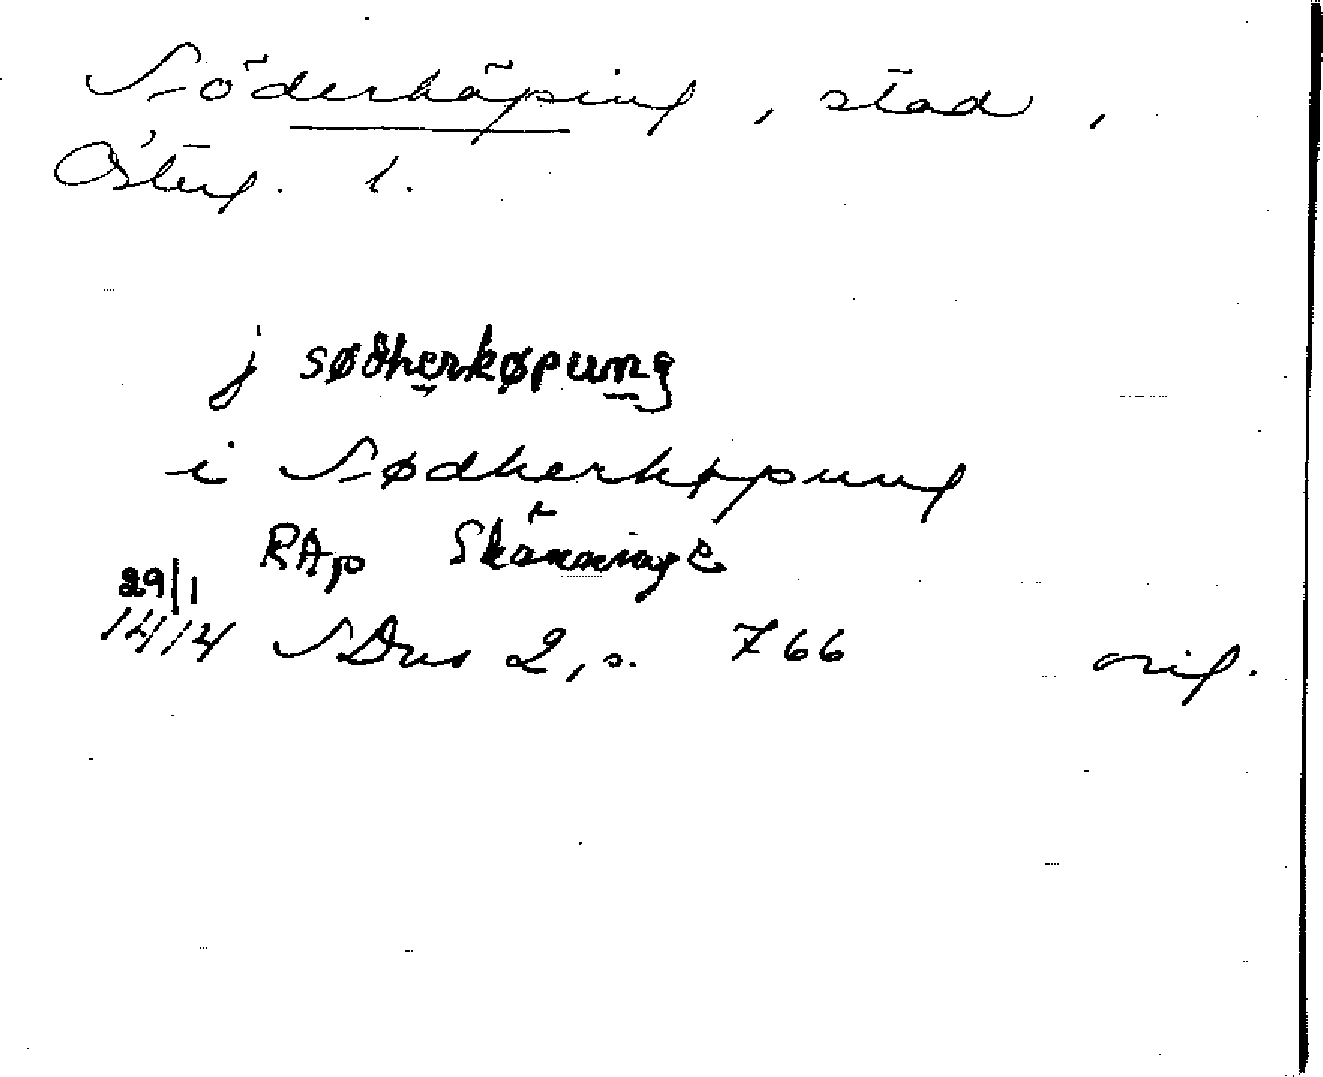 Söderköping, stad,
Österg. l.
j sødherkøpung
i Sødherkøpung
RAp Skänninge
29/1
1414 SDns 2, s. 766 orig.